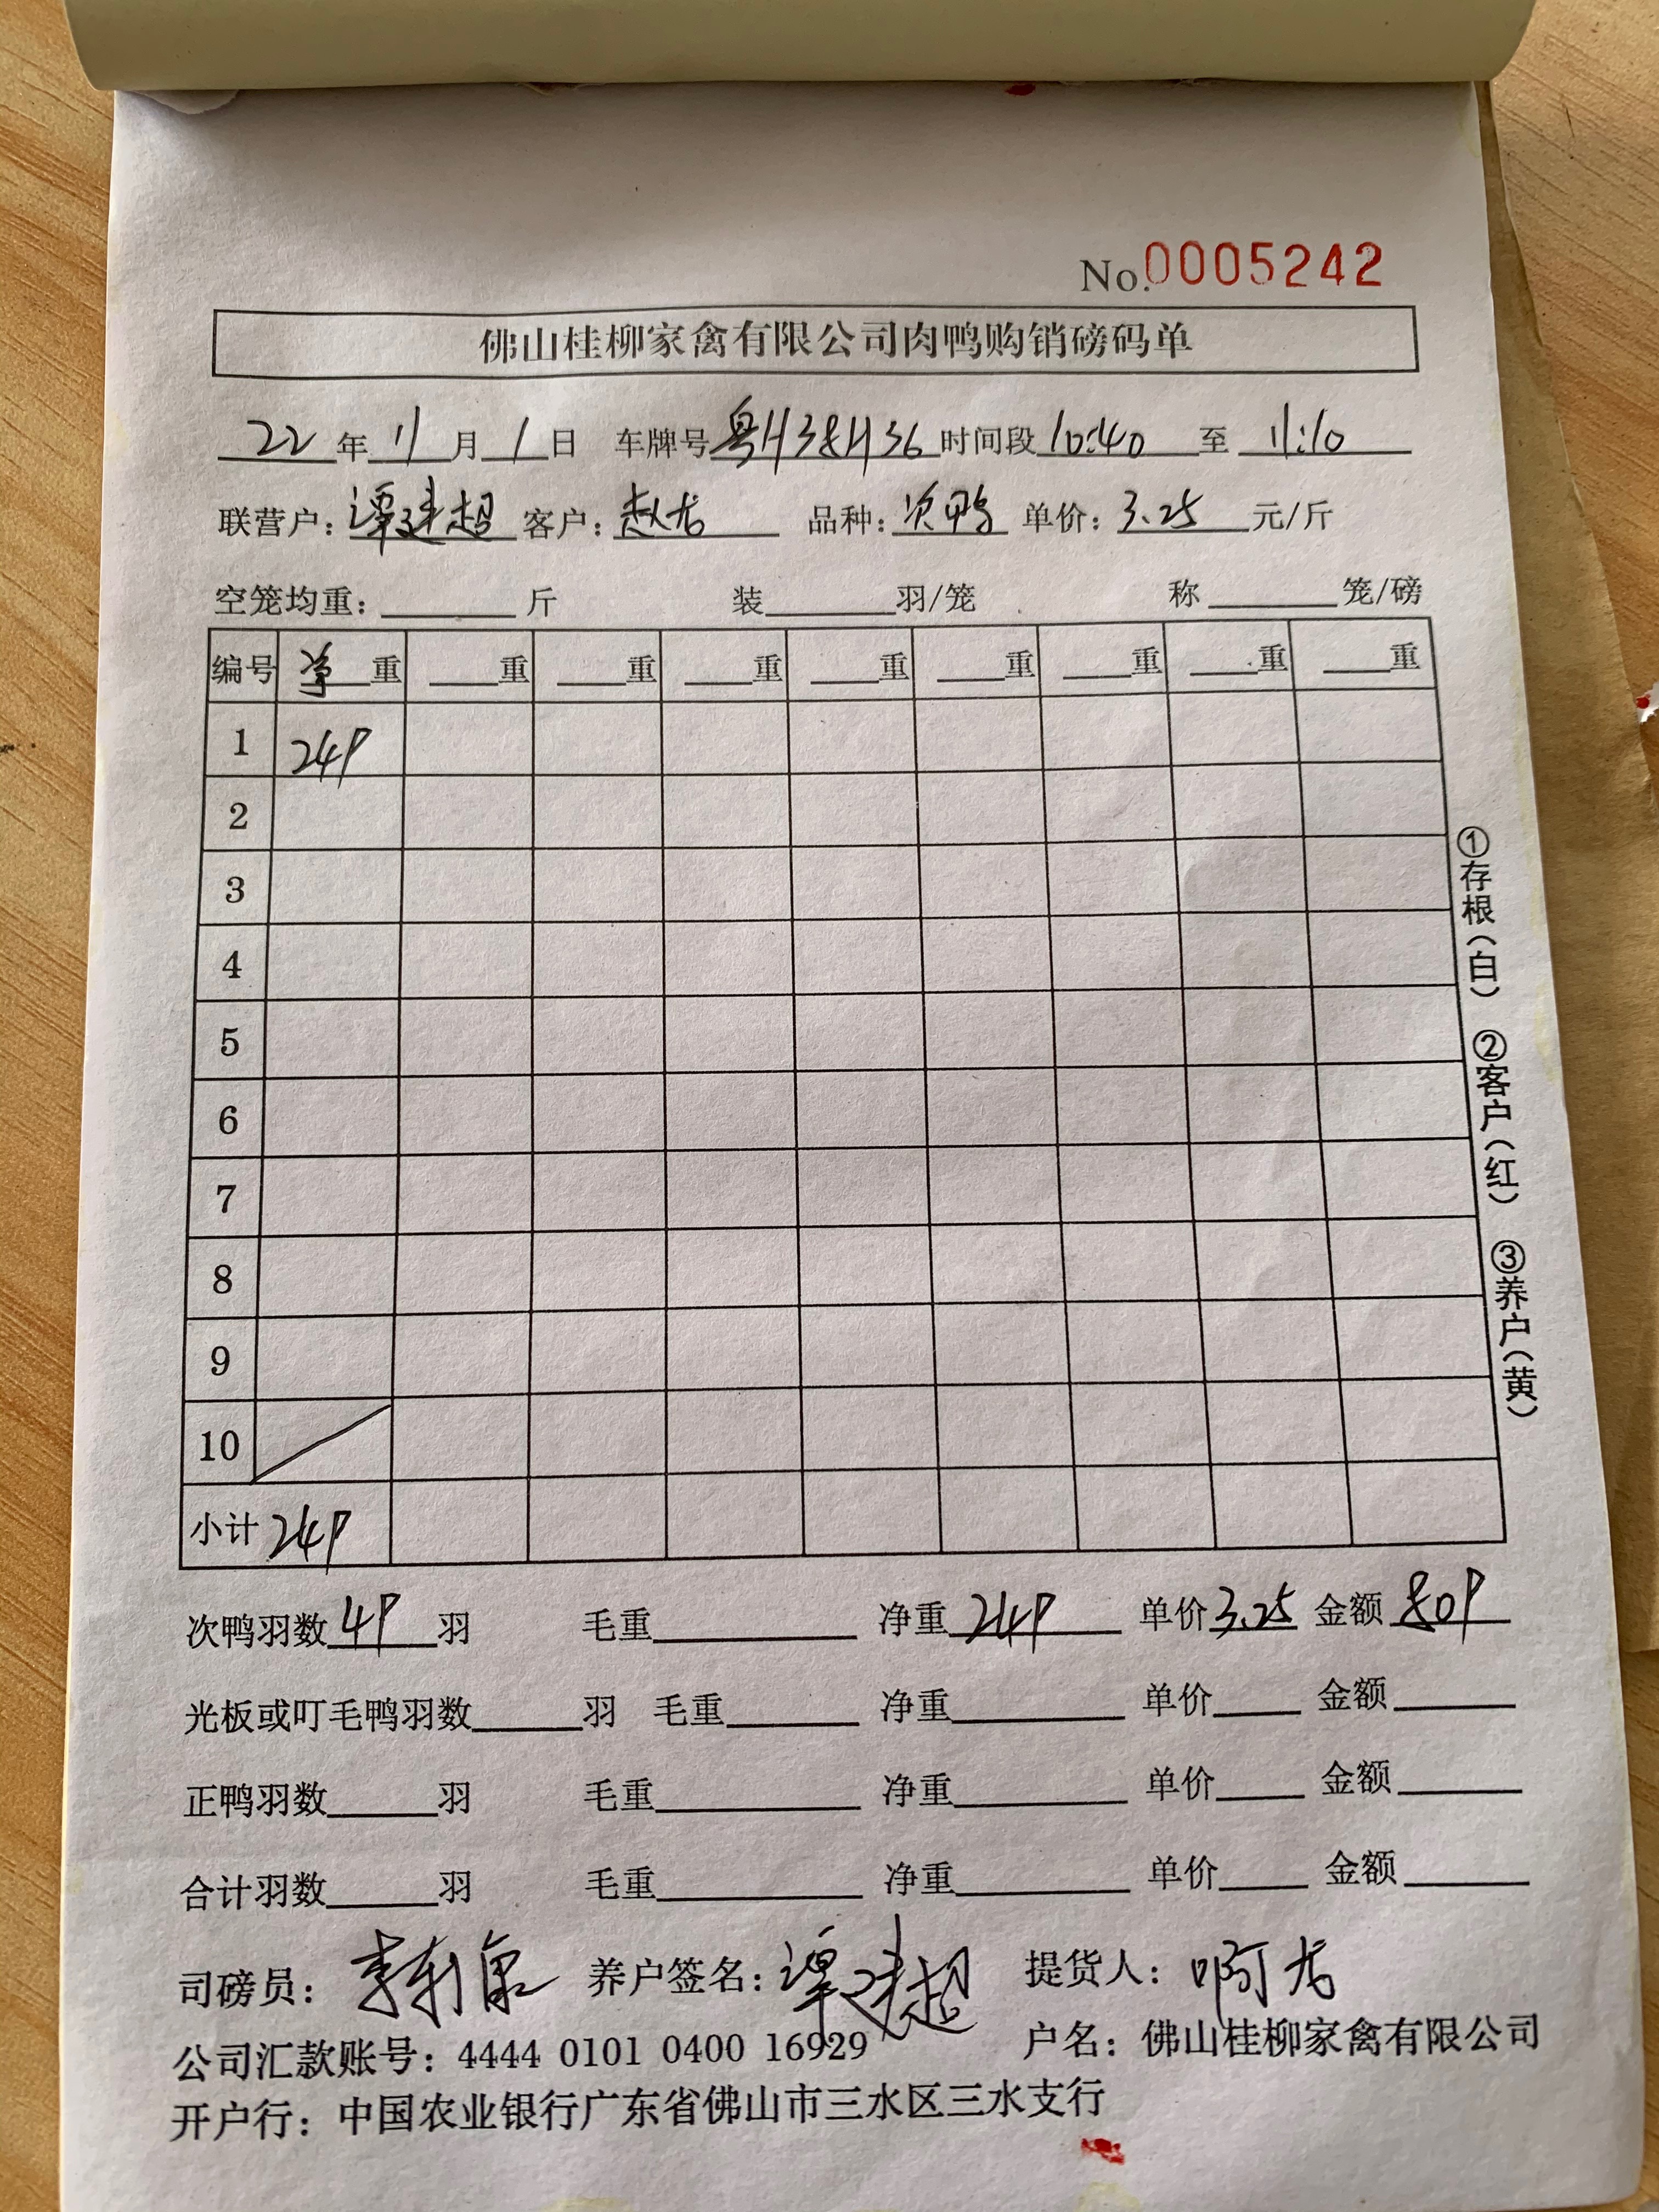 No.0005242
佛山桂柳家禽有限公司肉鸭购销磅码单
22年11月1日 车牌号粤H38H36时间段10:40至11:10
联营户：谭建超 客户：赵龙 品种：次鸭 单价：3.25元/斤
空笼均重：斤 装羽/笼 称笼/磅
编号 重 重 重 重 重 重 重 重 重
1 249
2
3
4
5
6
7
8
9
10
小计 249
①存根（白） ②客户（红） ③养户（黄）
次鸭羽数49羽 毛重 净重249 单价3.25 金额809
光板或叮毛鸭羽数羽 毛重 净重 单价 金额
正鸭羽数羽 毛重 净重 单价 金额
合计羽数羽 毛重 净重 单价 金额
司磅员： 养户签名：谭建超 提货人：啊龙
公司汇款账号：4444 0101 0400 16929 户名：佛山桂柳家禽有限公司
开户行：中国农业银行广东省佛山市三水区三水支行